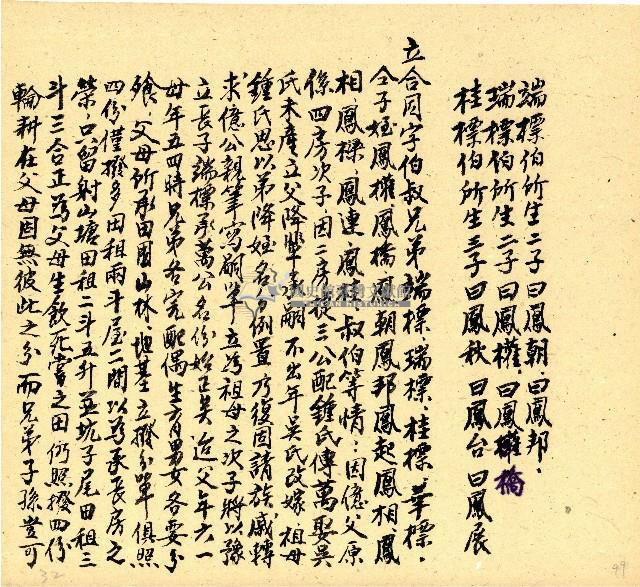 端標伯所生二子曰鳳朝.曰鳳邦.
瑞標伯所生二子曰鳳權.曰鳳橋
桂標伯所生三子曰鳳秋 曰鳳台 曰鳳展
立合同字伯叔兄弟 端標.瑞標.桂標.華標.
仝子姪鳳權鳳橋鳳朝鳳邦鳳起鳳相鳳
相.鳳樑.鳳連.鳳 叔伯等情.因億父原
係四房次子.因二房 三公配鍾氏傳萬娶吳
氏未產立父降輩 嗣不出年吳氏改嫁.祖母
鍾氏思以弟降姪名 例置乃復因請族戚轉
求億公親筆寫嗣單立為祖母之次子將以豫
立長子端標承萬公名份始正矣 迨父年六一
母年五四時兄弟各完配偶生育男女各要分
飱.父母所承田園山林.地基立撥分單俱照
四份僅撥多田租兩斗屋二間以為承長房之
榮.只留射山塘田租二斗五升並坑子尾田租三
斗三合正為父母生飲死嘗之田仍照撥四份
輪耕在父母固無彼此之分而兄弟子孫豈可
32
49